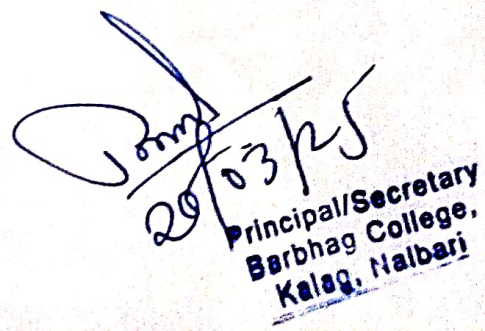 20/03/25
Principal/Secretary
Barbhag College,
Kalag, Nalbari